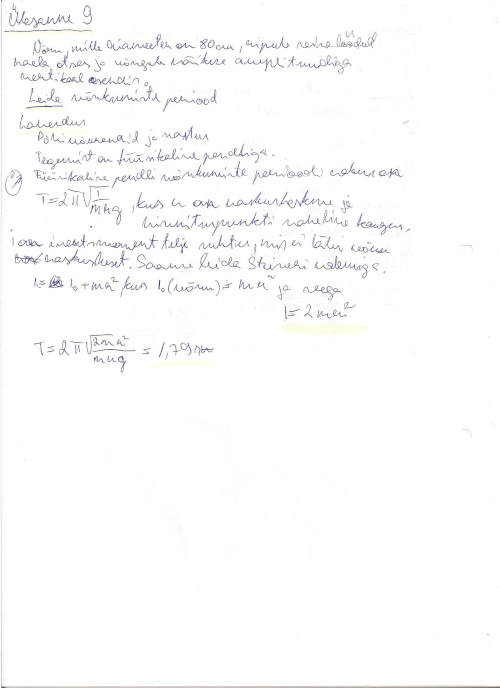 Ülesanne 9
Võru, mille diameeter on 80cm, ripub seina löödud
naela otsas ja võngub väikese amplituudiga
vertikaal asendis.
Leida võnkumiste periood
Lahendus
Põhivõrrandid ja vastus
Tegemist on füüsikalise pendliga.
Füüsikalise pendli võnkumiste perioodi valem on
T = 2π√(I/mag), kus a on raskuskeskme ja
kinnituspunkti vaheline kaugus.
I on inertsmoment telje suhtes, mis ei läbi võru
raskuskeset. Saame leida Steineri valemiga.
I = I₀ + ma², kus I₀ (võru) = ma² ja seega
I = 2ma²
T = 2π√(2ma²/mag) = 1,79s